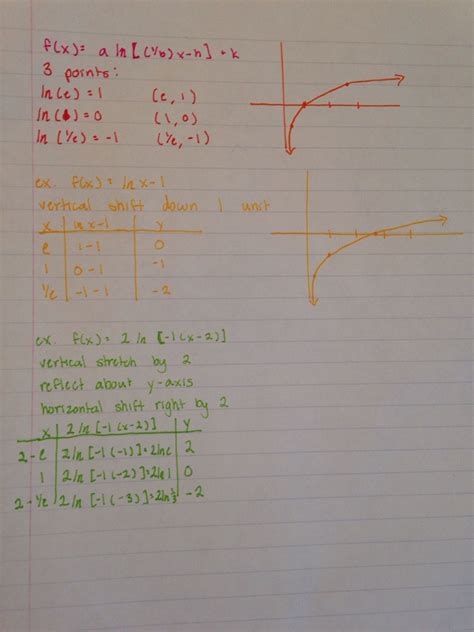 f(x)= a ln [(1/b) x-h] + k
3 points:
ln(e) = 1 (e, 1)
ln(1) = 0 (1, 0)
ln (1/e) = -1 (1/e, -1)
ex. f(x) = ln x-1
vertical shift down 1 unit
x ln x-1 y
e 1-1 0
1 0-1 -1
1/e -1-1 -2
ex. f(x) = 2 ln [-1(x-2)]
vertical stretch by 2
reflect about y-axis
horizontal shift right by 2
x 2 ln [-1(x-2)] y
2-e 2 ln [-1(-1)]=2lne 2
1 2 ln [-1(-2)]=2ln1 0
2-1/e 2 ln [-1(-3)]=2ln -2